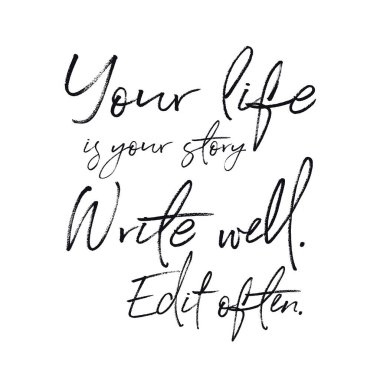 Your life
is your story
Write well.
Edit often.